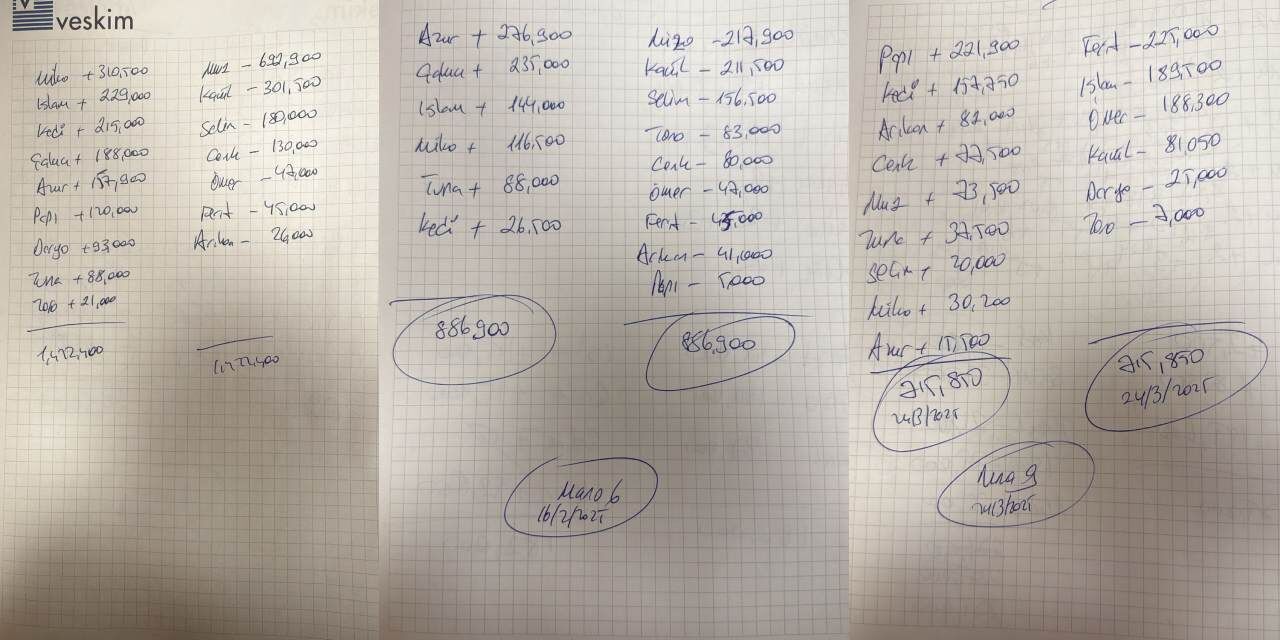 veskim
Miko + 310,500
Islam + 229,000
Kedi + 215,000
+ 188,000
Azur + 157,900
Papi + 120,000
Dargo + 93,000
Tuna + 88,000
Toro + 21,000
1,422,400
Muz - 692,900
Kamil - 301,500
Selim - 180,000
Cenk - 130,000
Ömer - 47,000
Ferit - 45,000
Arikan - 26,000
1,422,400
Azur + 276,900
+ 235,000
Islam + 144,000
Miko + 116,500
Tuna + 88,000
Kedi + 26,500
886,900
- 217,900
Kamil - 211,500
Selim - 156,500
Toro - 83,000
Cenk - 80,000
Ömer - 47,000
Ferit - 45,000
Arikan - 41,000
Papi - 5,000
886,900
6
16/2/2025
Papi + 221,900
Kedi + 157,750
Arikan + 82,000
Cenk + 77,500
Muz + 73,500
Tuna + 37,500
Selim + 20,000
Miko + 30,200
Azur + 15,500
715,850
24/3/2025
Ferit - 225,000
Islam - 189,500
Ömer - 188,300
Kamil - 81,050
Dargo - 25,000
Toro - 7,000
715,850
24/3/2025
9
24/3/2025